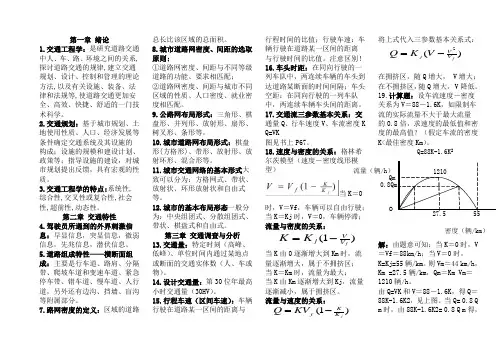 第一章 绪论
1.交通工程学：是研究道路交通
中人、车、路、环境之间的关系,
探讨道路交通的规律,建立交通
规划、设计、控制和管理的理论
方法,以及有关设施、装备、法
律和法规等,使道路交通更加安
全、高效、快捷、舒适的一门技
术科学。
2.交通规划：基于城市规划、土
地使用性质、人口、经济发展等
条件确定交通系统及其设施的
构成；设施的规模和建设计划、
政策等；指导设施的建设；对城
市规划提出反馈，具有宏观的性
质。
3.交通工程学的特点:系统性,
综合性,交叉性或复合性,社会
性,超前性,动态性。
第二章 交通特性
4.驾驶员所遇到的外界刺激信
息：早显信息、突显信息、微弱
信息、先兆信息、潜伏信息。
5.道路组成特性——横断面组
成：主要是行车道、路肩、分隔
带、爬坡车道和变速车道、紧急
停车带、错车道、慢车道、人行
道，另外还有边沟、挡墙、盲沟
等附属部分。
7.路网密度的定义：区域的道路
总长比该区域的总面积。
8.城市道路网密度、间距的选取
原则：
①道路网密度、间距与不同等级
道路的功能、要求相匹配；
②道路网密度、间距与城市不同
区域的性质、人口密度、就业密
度相匹配。
9.公路网布局形式：三角形、棋
盘形、并列形、放射形、扇形、
树叉形、条形等。
10.城市道路网布局形式：棋盘
形(方格形)、带形、放射形、放
射环形、混合形等。
11.城市交通网络的基本形式大
致可以分为：方格网式、带状、
放射状、环形放射状和自由式
等。
12.城市的基本布局形态一般分
为：中央组团式、分散组团式、
带状、棋盘式和自由式。
第三章 交通调查与分析
13.交通量：特定时间（高峰、
低峰）、单位时间内通过某地点
或断面的交通实体数（人、车或
物）。
14.设计交通量：第30位年最高
小时交通量（30HV）。
15.行程车速（区间车速）：车辆
行驶在道路某一区间的距离与
行程时间的比值；行驶车速：车
辆行驶在道路某一区间的距离
与行驶时间的比值。注意区别！
16.车头时距：在同向行驶的一
列车队中，两连续车辆的车头到
达道路某断面的时间间隔；车头
空距：在同向行驶的一列车队
中，两连续车辆车头间的距离。
17.交通流三参数基本关系：交
通量Q、行车速度V、车流密度K
Q=VK
图见书上P67。
18.速度与密度的关系：格林希
尔茨模型（速度一密度线形模
型）
当K＝0
时，V=Vf，车辆可以自由行驶；
当K=Kj时，V＝0，车辆停滞；
流量与密度的关系：
当K由0逐渐增大到Km时，流
量逐渐增大，属于不拥挤区；
当K＝Km时，流量为最大；
当K由Km逐渐增大到Kj，流量
逐渐减小，属于拥挤区。
流量与速度的关系：
将上式代入三参数基本关系式：
在拥挤区，随Q增大， V增大；
在不拥挤区,随Q增大，V降低。
19.计算题：设车流速度—密度
关系为V＝88－1.6K，如限制车
流的实际流量不大于最大流量
的0.8倍，求速度的最低值和密
度的最高值？（假定车流的密度
K<最佳密度Km）。
Q=88K-1.6K²
流量（辆/h）
1210
Qm
0.8Qm
0
27.5 55
密度（辆/km）
解：由题意可知：当K＝0时，V
＝Vf＝88km/h； 当V＝0时，
K=Kj=55辆/km，则Vm＝44km/h，
Km =27.5辆/km，Qm＝Km Vm＝
1210辆/h。
由Q=VK和V＝88－1.6K，得Q＝
88K-1.6K2，见上图，当Q= 0.8 Q
m时，由88K-1.6K2= 0.8 Q m得，